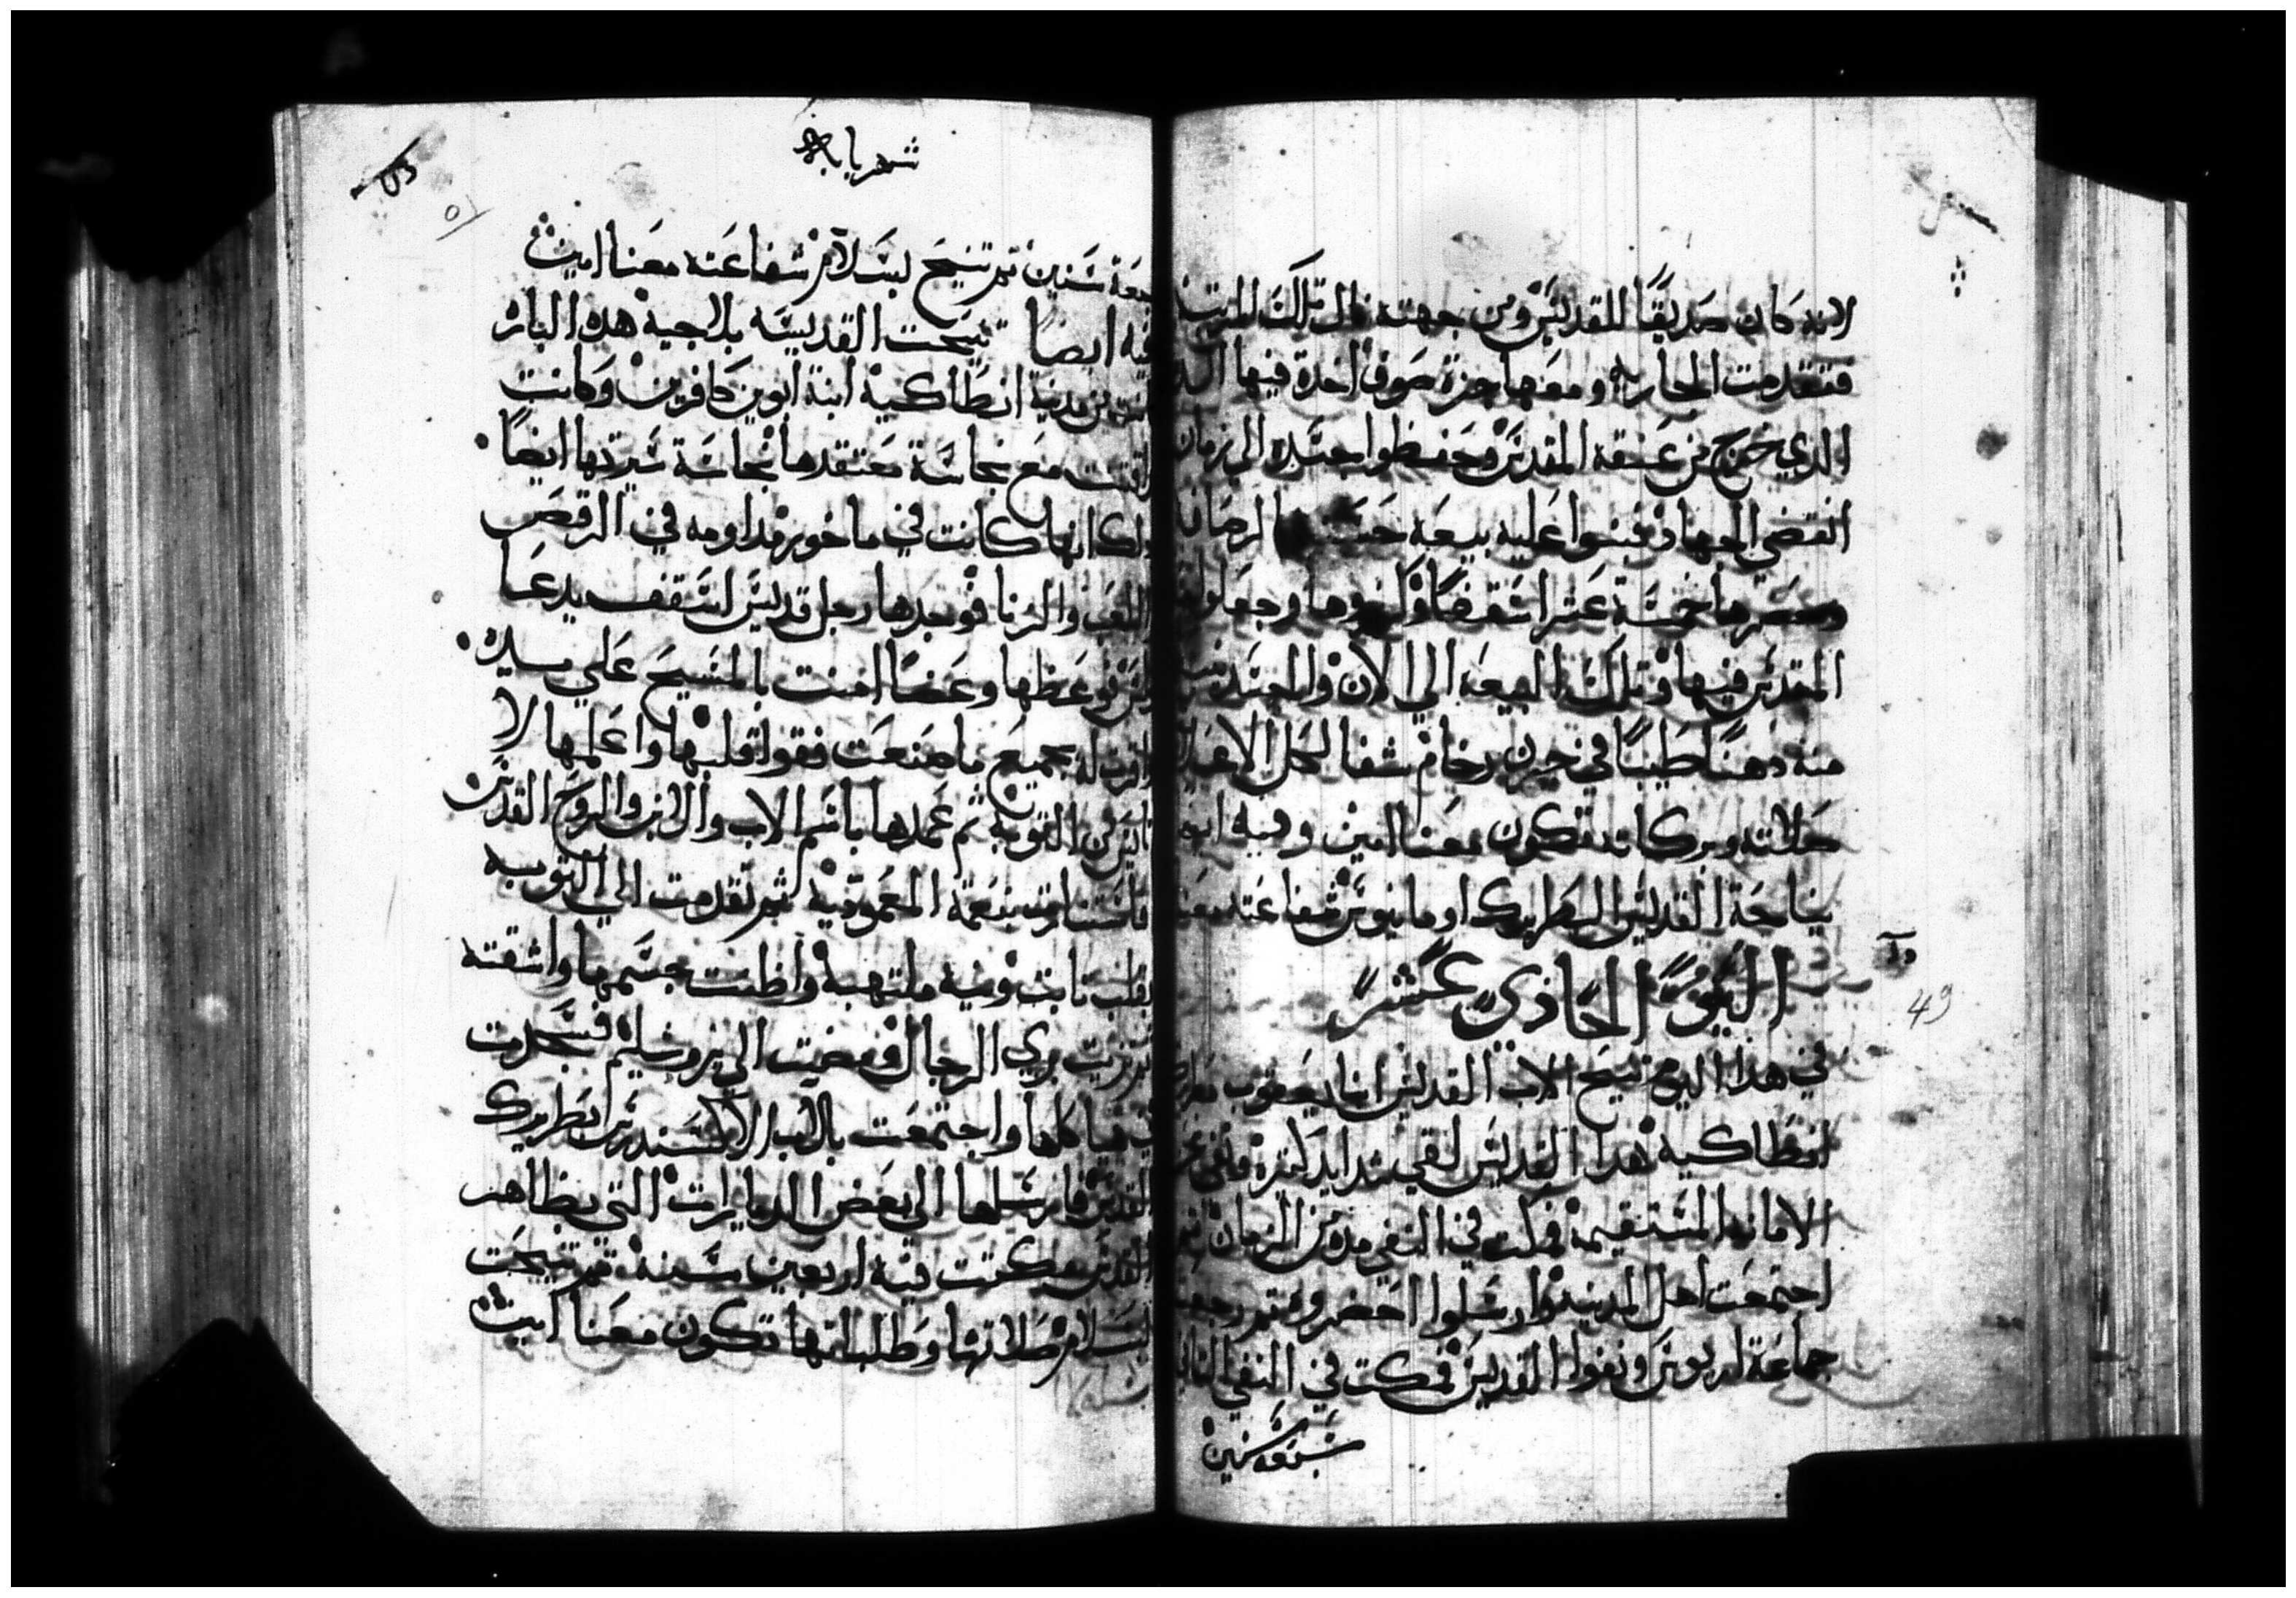 لانه كان صديقا للقديس ومن جهته قال تلك المرتبة
فتقدمت الجاريه ومعها جزة صوف اخدة فيها الدم
الدي خرج من عنقه المقدس وحفظوا جسده الي زمان
انقضي الجهاد وبنوا عليه بيعه حسنه
خمسة عشر اسقفا وكرزوها وجعلوا
المقدس فيها وتلك البيعه الي الان والجسد
منه دهنا طيبا في جرن رخام شفا لكل الاعلال
صلاته وبركاته تكون معنا امين وفيه ايضا
نياحة القديس البطريرك اومانيوس شفاعته معنا
اليوم الحادي عشر
49
في هدا اليوم تنيح الاب القديس انبا يعقوب بطريرك
انطاكية هدا القديس لقي شدايد كثيرة ونفي عن
الامانه المستقيمة فمكث في النفي مدة من الزمان ثم
اجتمعت اهل المدينه وارسلوا احضروه ثم رجعت
جماعة اريوس ونفوا القديس فمكت في النفي الثاني
سبعة سنين
شهر بابه
سبعة سنين ثم تنيح بسلام شفاعته معنا امين
فيه ايضا تنيحت القديسه بلاجية هده الباره
كانت من مدينة انطاكية ابنة ابوين كافرين وكانت
اتفقت مع نجاسة معتقدها نجاسة سيرتها ايضا
ودلك انها كانت في ماخور مداومه في الرقص
واللعب والزنا فوجدها رجل قديس اسقف يدعا
بولس فوعظها وعضا امنت بالمسيح علي يديه
واقرت له بجميع ما صنعت فقوا قلبها واعلمها لا
تايس من التوبة ثم عمدها باسم الاب والابن والروح القدس
فاستنارت بنعمة المعمودية ثم تقدمت الي التوبه
بقلب تابت ونية ملتهبة واظنت جسمها واشقته
تزيت بزي الرجال ومضت الي يروشليم فسجدت
في هياكلها واجتمعت بالاب الاكسندرس بطريرك
القدس فارسلها الي بعض الديارات التي بظاهر
القدس مكتت فيه اربعين سنة ثم تنيحت
بسلام صلاتها وطلباتها تكون معنا امين